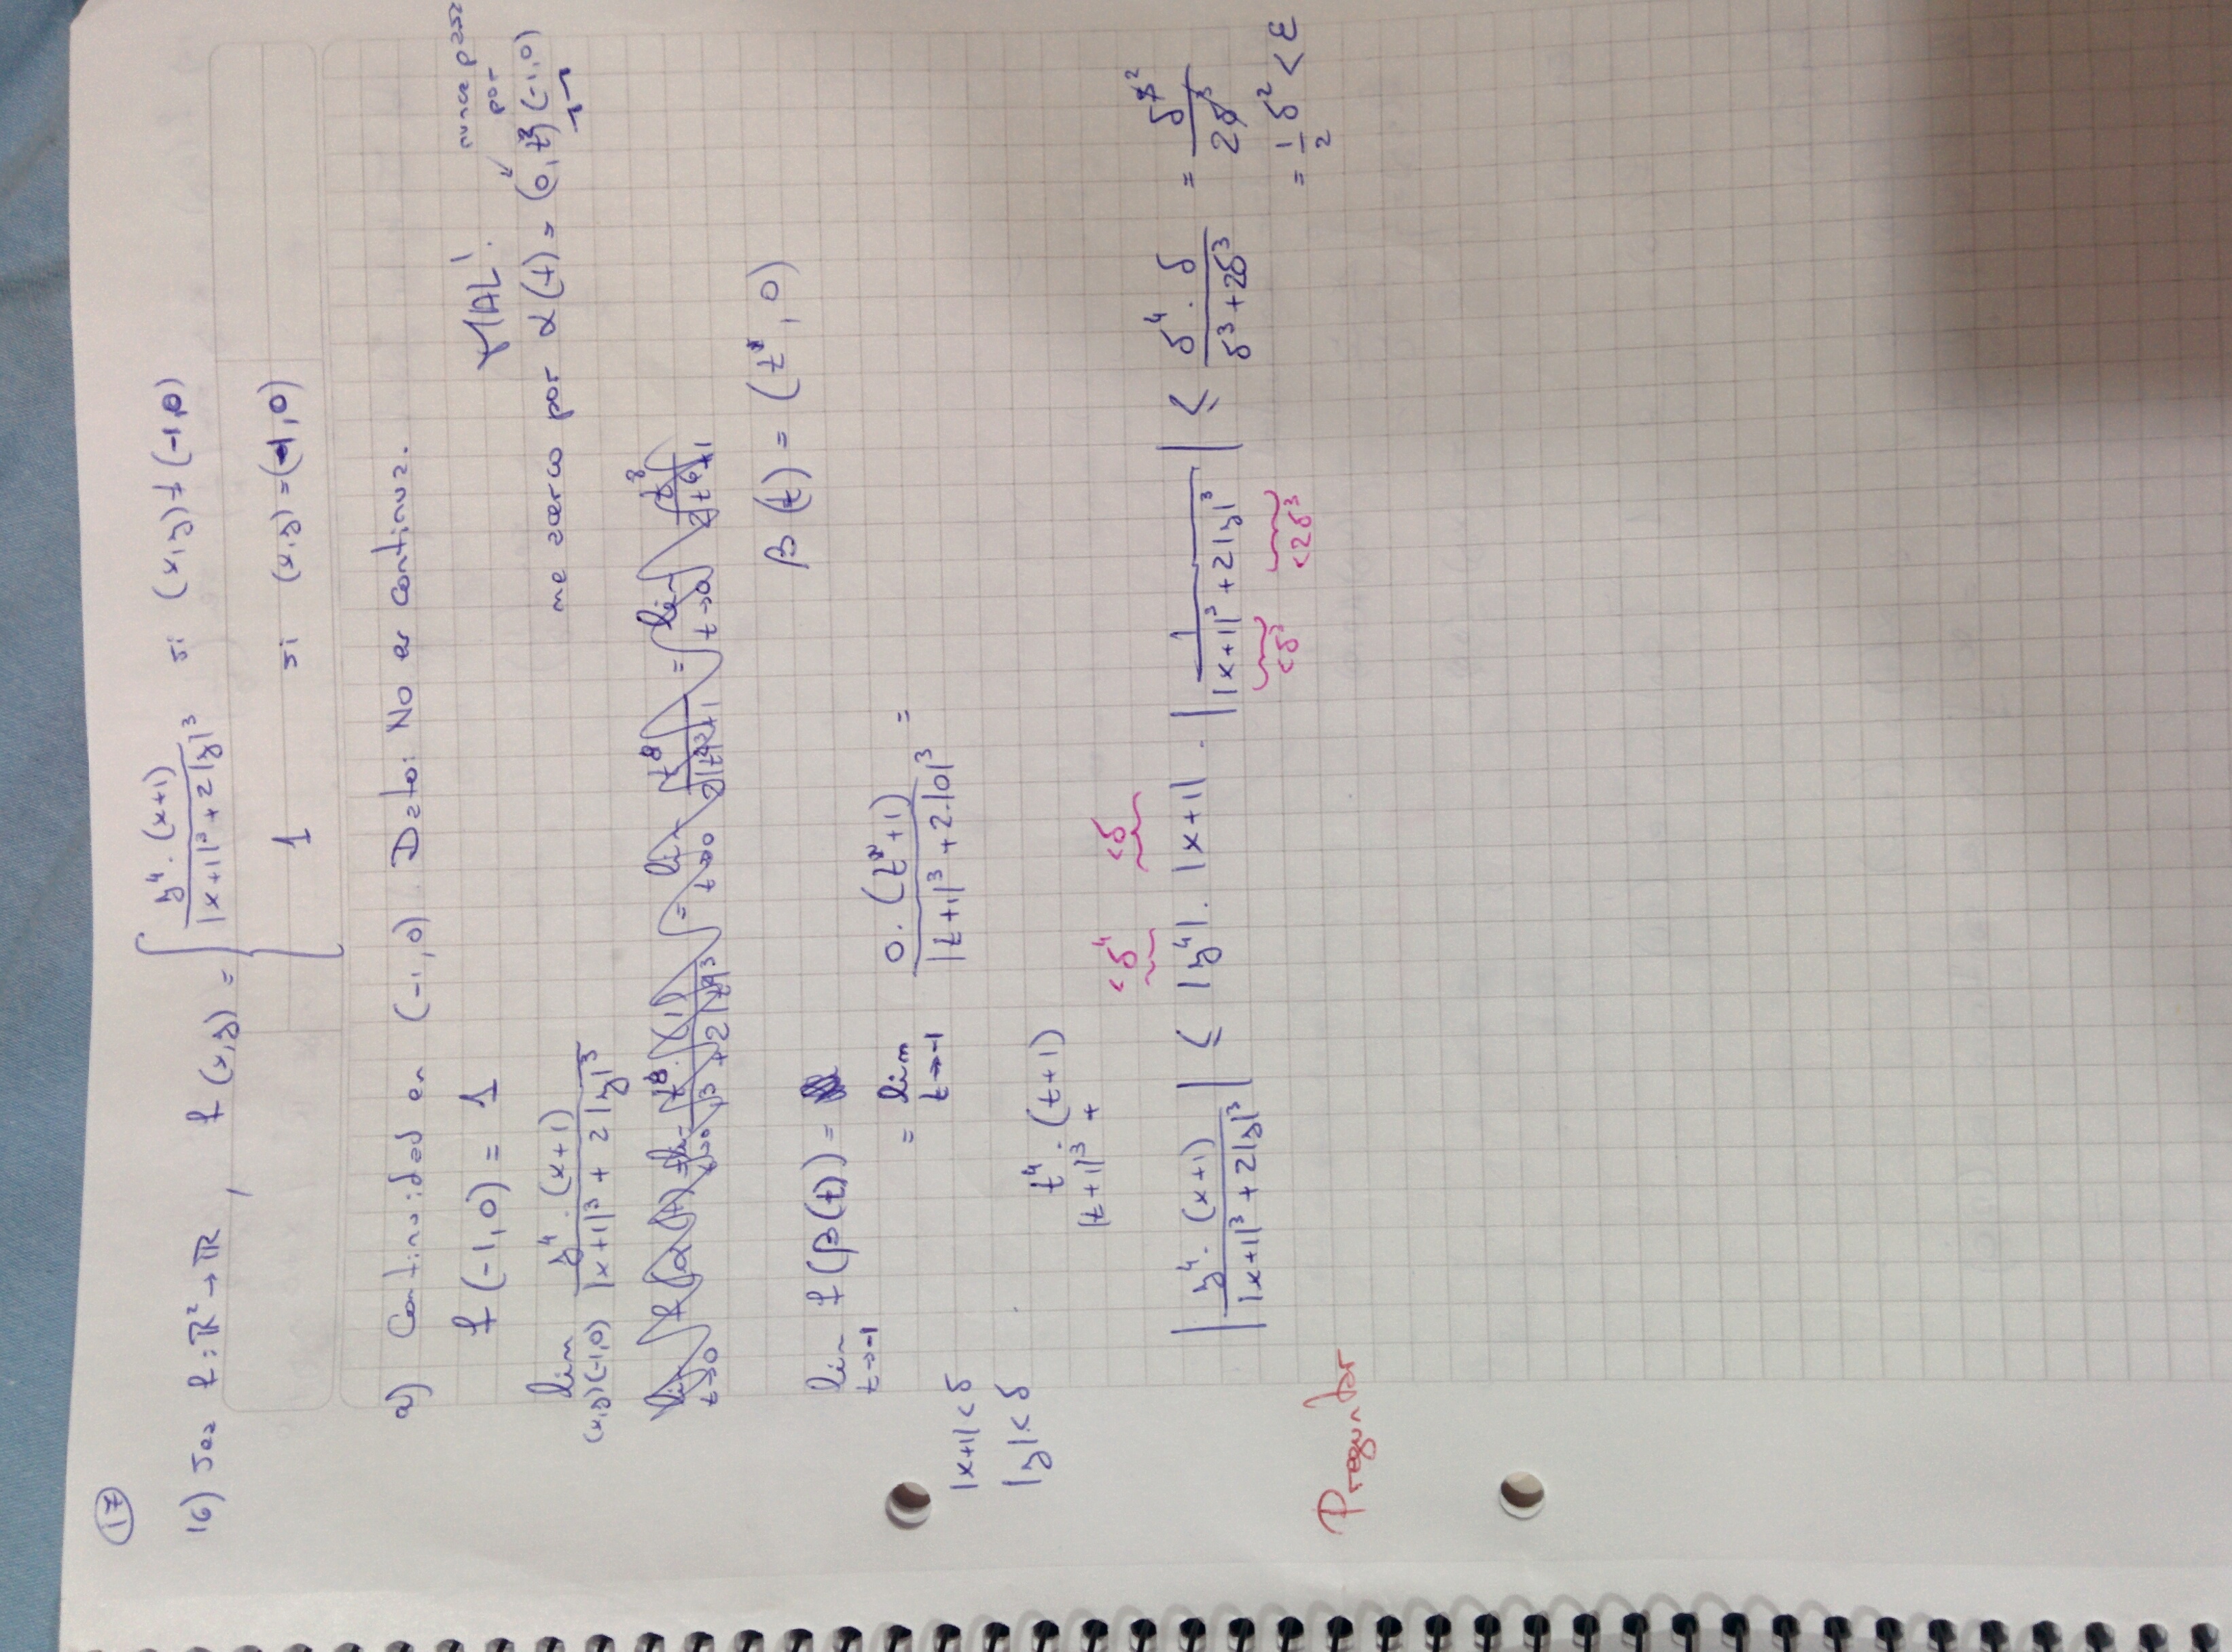 17
16) Sea f: ℝ² → ℝ , f(x,y) = { y⁴ · (x+1) / (|x+1|³ + 2|y|³) si (x,y) ≠ (-1,0)
1 si (x,y) = (-1,0)
a) Continuidad en (-1,0). Dato: No es continua.
f(-1,0) = 1
MAL! nunca pasa por
lim (x,y)(-1,0) y⁴ · (x+1) / (|x+1|³ + 2|y|³) me acerco por α(t) = (0, t²) (-1,0)
β(t) = (t, 0)
lim t→-1 f(β(t)) =
= lim t→-1 0 · (t+1) / (|t+1|³ + 2·|0|³) =
|x+1| < δ
|y| < δ
t⁴ · (t+1)
|t+1|³ +
< δ⁴ < δ
| y⁴ · (x+1) / (|x+1|³ + 2|y|³) | ≤ |y⁴| · |x+1| · | 1 / (|x+1|³ + 2|y|³) | ≤ δ⁴ · δ / (δ³ + 2δ³) = δ² / 2δ³
< δ³ < 2δ³
= 1/2 δ² < ε
Preguntar